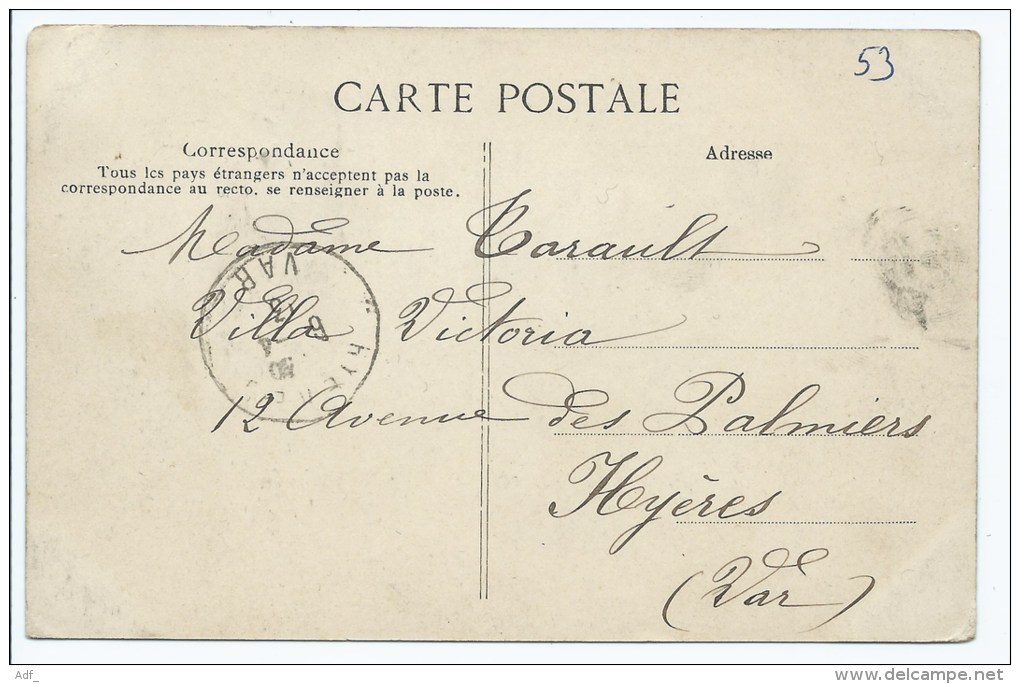 53
CARTE POSTALE
Correspondance
Tous les pays étrangers n'acceptent pas la
correspondance au recto. se renseigner à la poste.
Adresse
Madame Tarault
Villa Victoria
12 Avenue des Palmiers
Hyères
(Var)
HYERES
VAR
Adf_
delcampe.net